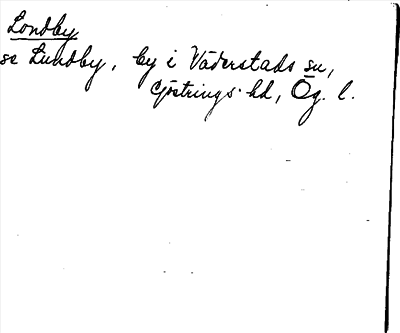 Londby
se Lundby, by i Väderstads sn,
Göstrings hd, Ög. l.